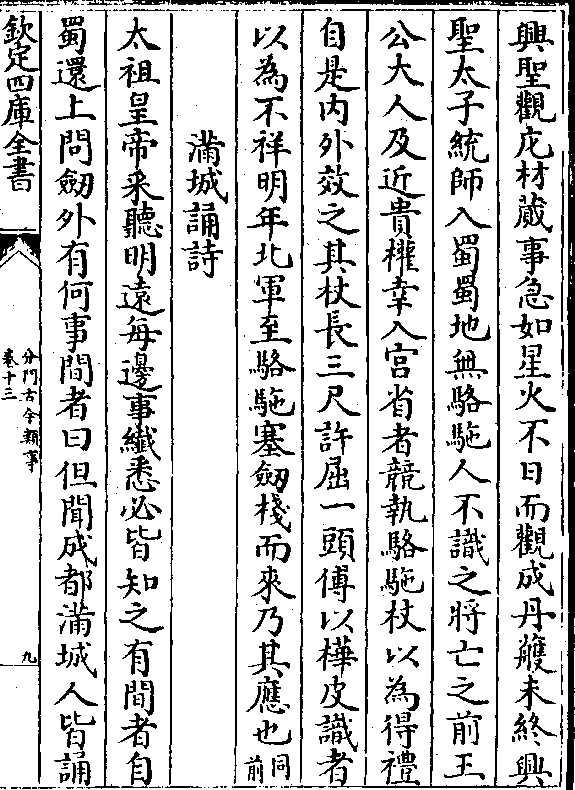 興聖觀庀材蕆事急如星火不日而觀成丹雘未終興
聖太子統師入蜀蜀地無駱駞人不識之將亡之前王
公大人及近貴權幸入宮省者競執駱駞杖以為得禮
自是内外效之其杖長三尺許屈一頭傅以樺皮識者
以為不祥明年北軍至駱駞塞劒棧而來乃其應也同前
滿城誦詩
太祖皇帝采聽明遠每邊事纎悉必皆知之有間者自
蜀還上問劒外有何事間者曰但聞成都滿城人皆誦
欽定四庫全書
分門古今類事
卷十三
九